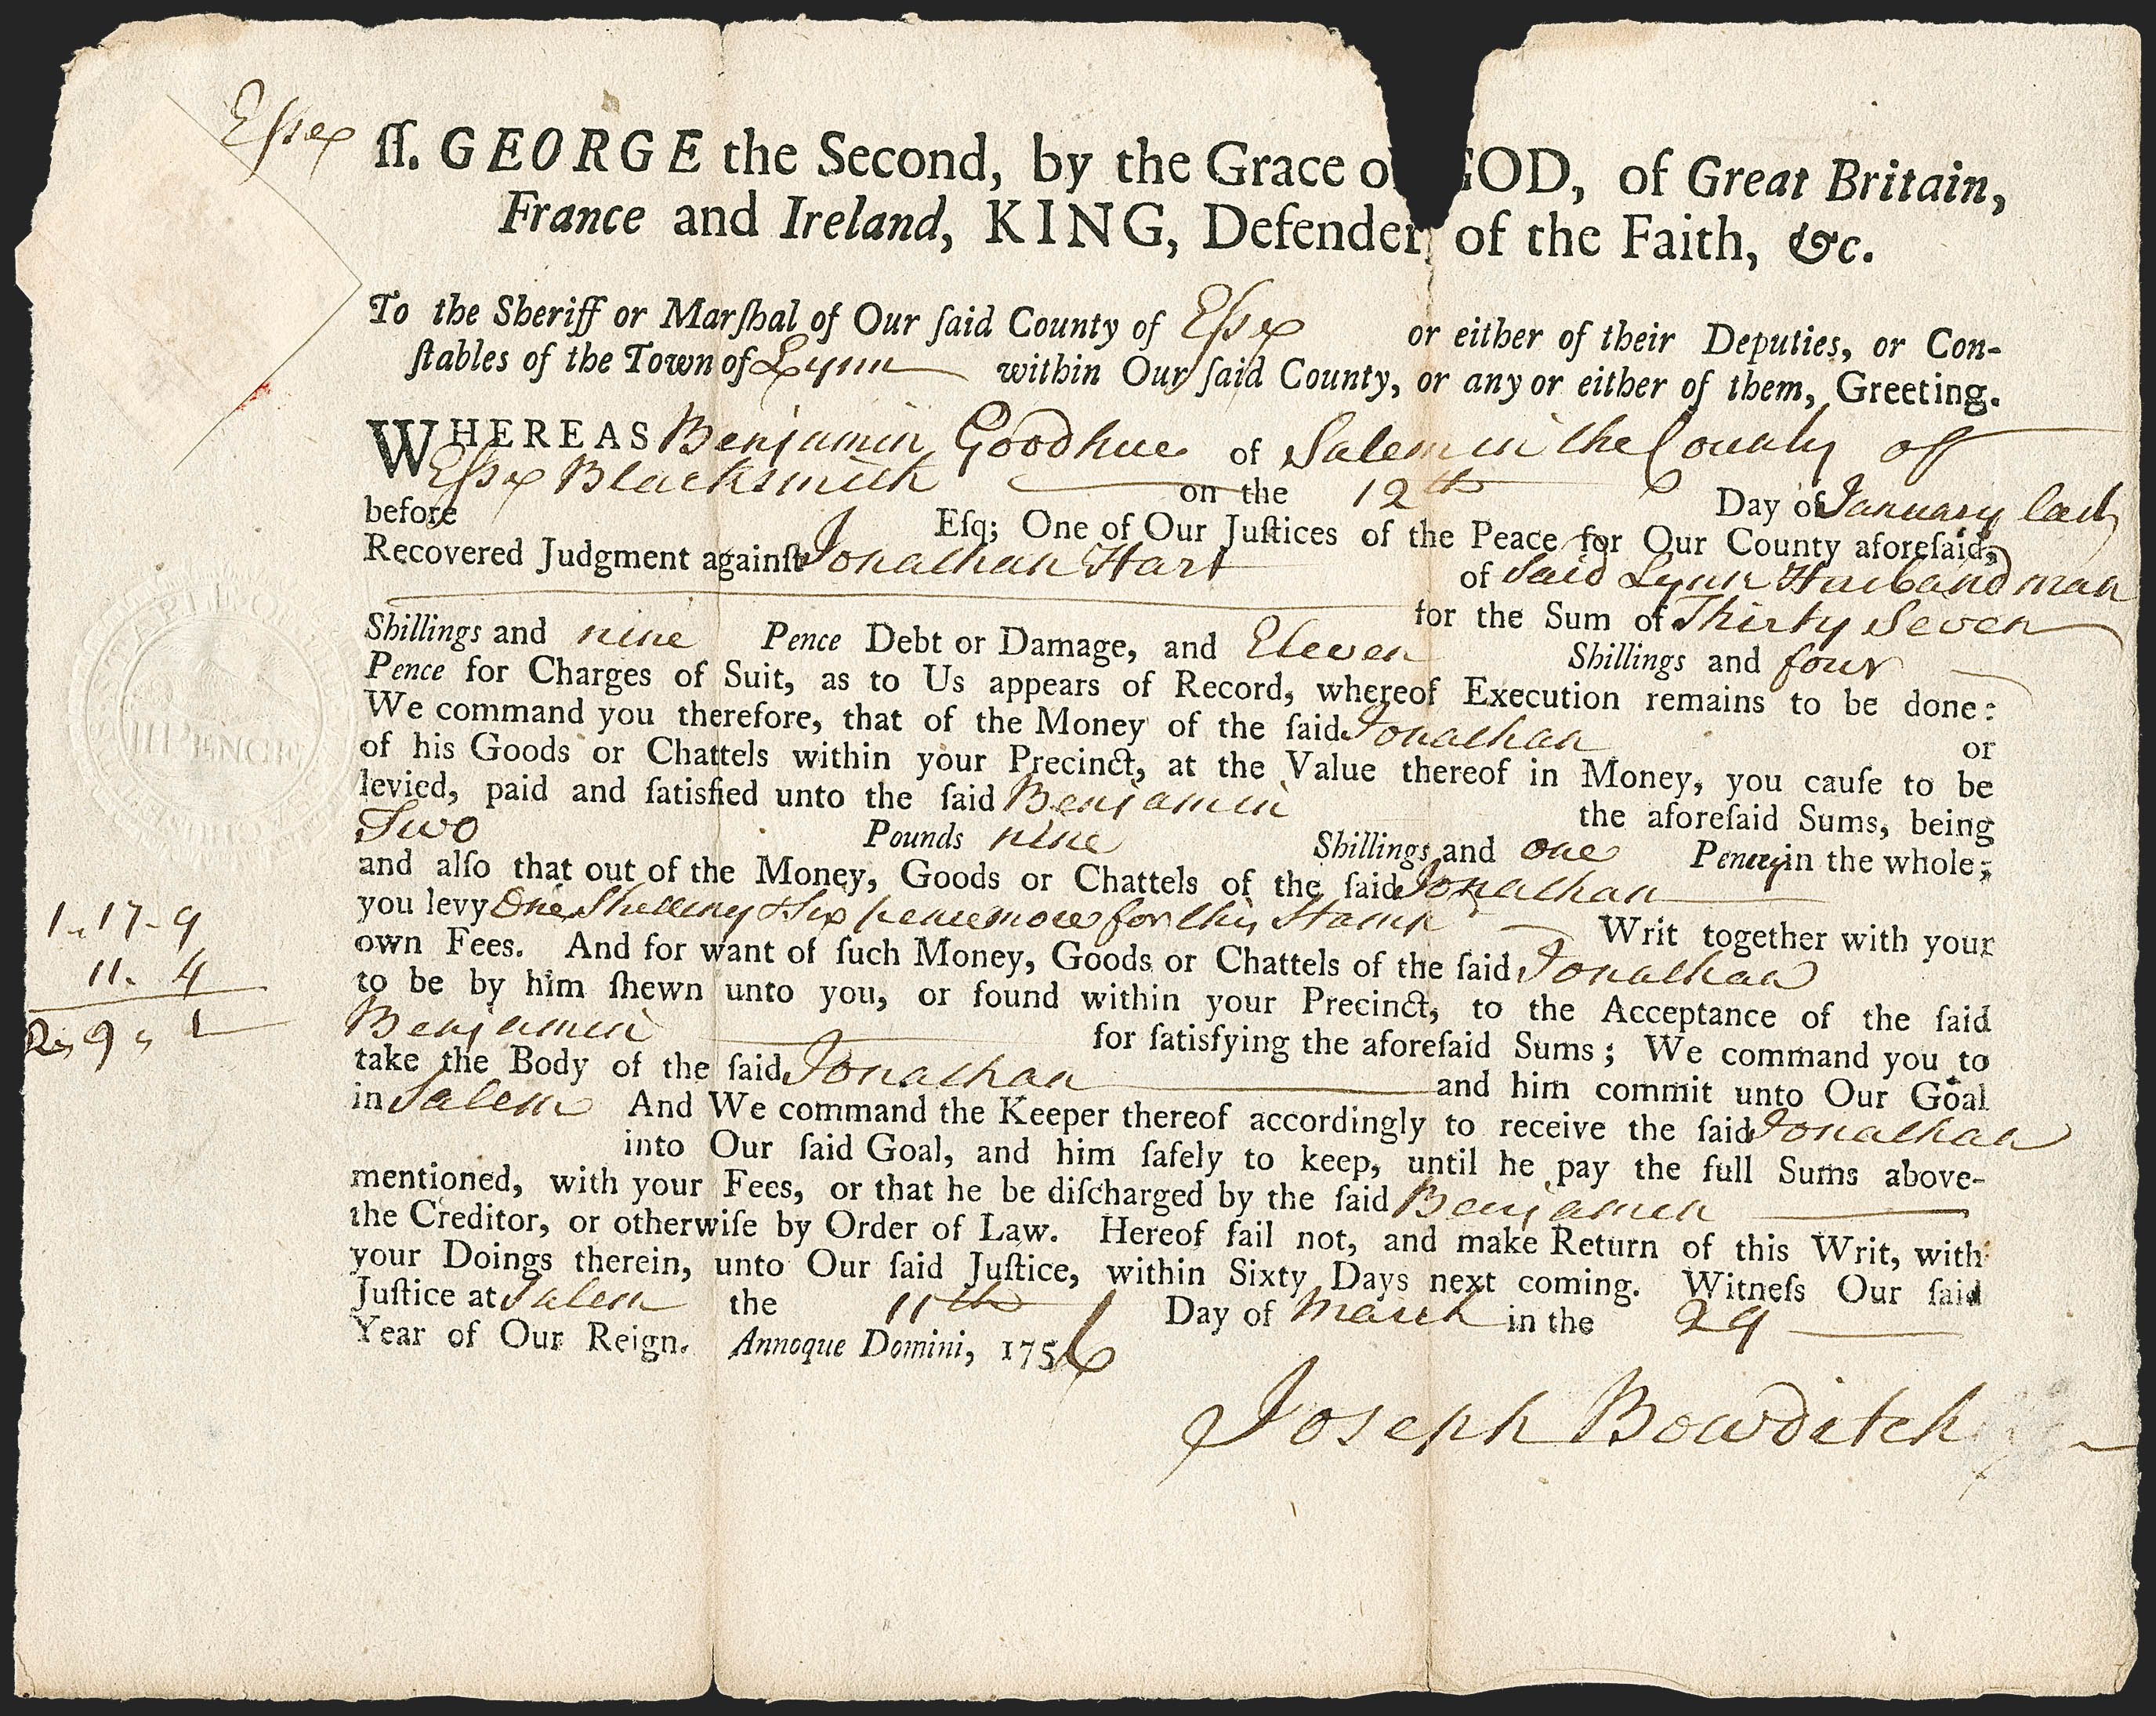 Essex ſſ. GEORGE the Second, by the Grace o GOD, of Great Britain,
France and Ireland, KING, Defender of the Faith, &c.
To the Sheriff or Marſhal of Our ſaid County of Essex or either of their Deputies, or Con-
ſtables of the Town of Lynn within Our ſaid County, or any or either of them, Greeting.
WHEREAS Benjamin Goodhue of Salem in the County of
Essex Blacksmith on the 12th Day of January last
before Eſq; One of Our Juſtices of the Peace for Our County aforeſaid,
Recovered Judgment againſt Jonathan Hart of said Lynn Husbandman
for the Sum of Thirty Seven
Shillings and nine Pence Debt or Damage, and Eleven Shillings and four
Pence for Charges of Suit, as to Us appears of Record, whereof Execution remains to be done:
We command you therefore, that of the Money of the ſaid Jonathan or
of his Goods or Chattels within your Precinct, at the Value thereof in Money, you cauſe to be
levied, paid and ſatisfied unto the ſaid Benjamin the aforeſaid Sums, being
Two Pounds nine Shillings and one Penny in the whole;
and alſo that out of the Money, Goods or Chattels of the ſaid Jonathan
you levy One Shilling & Six pence more for this Stamp Writ together with your
own Fees. And for want of ſuch Money, Goods or Chattels of the ſaid Jonathan
to be by him ſhewn unto you, or found within your Precinct, to the Acceptance of the ſaid
Benjamin for ſatisfying the aforeſaid Sums; We command you to
take the Body of the ſaid Jonathan and him commit unto Our Goal
in Salem And We command the Keeper thereof accordingly to receive the ſaid Jonathan
into Our ſaid Goal, and him ſafely to keep, until he pay the full Sums above-
mentioned, with your Fees, or that he be diſcharged by the ſaid Benjamin
the Creditor, or otherwiſe by Order of Law. Hereof fail not, and make Return of this Writ, with
your Doings therein, unto Our ſaid Juſtice, within Sixty Days next coming. Witneſs Our ſaid
Juſtice at Salem the 11th Day of March in the 29
Year of Our Reign. Annoque Domini, 1756
Joseph Bowditch
1 . 17 - 9
11 . 4
2 , 9 , 1
II PENCE